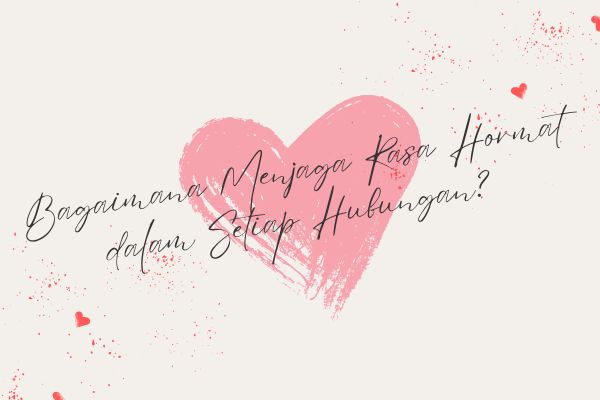 Bagaimana Menjaga Rasa Hormat
dalam Setiap Hubungan?